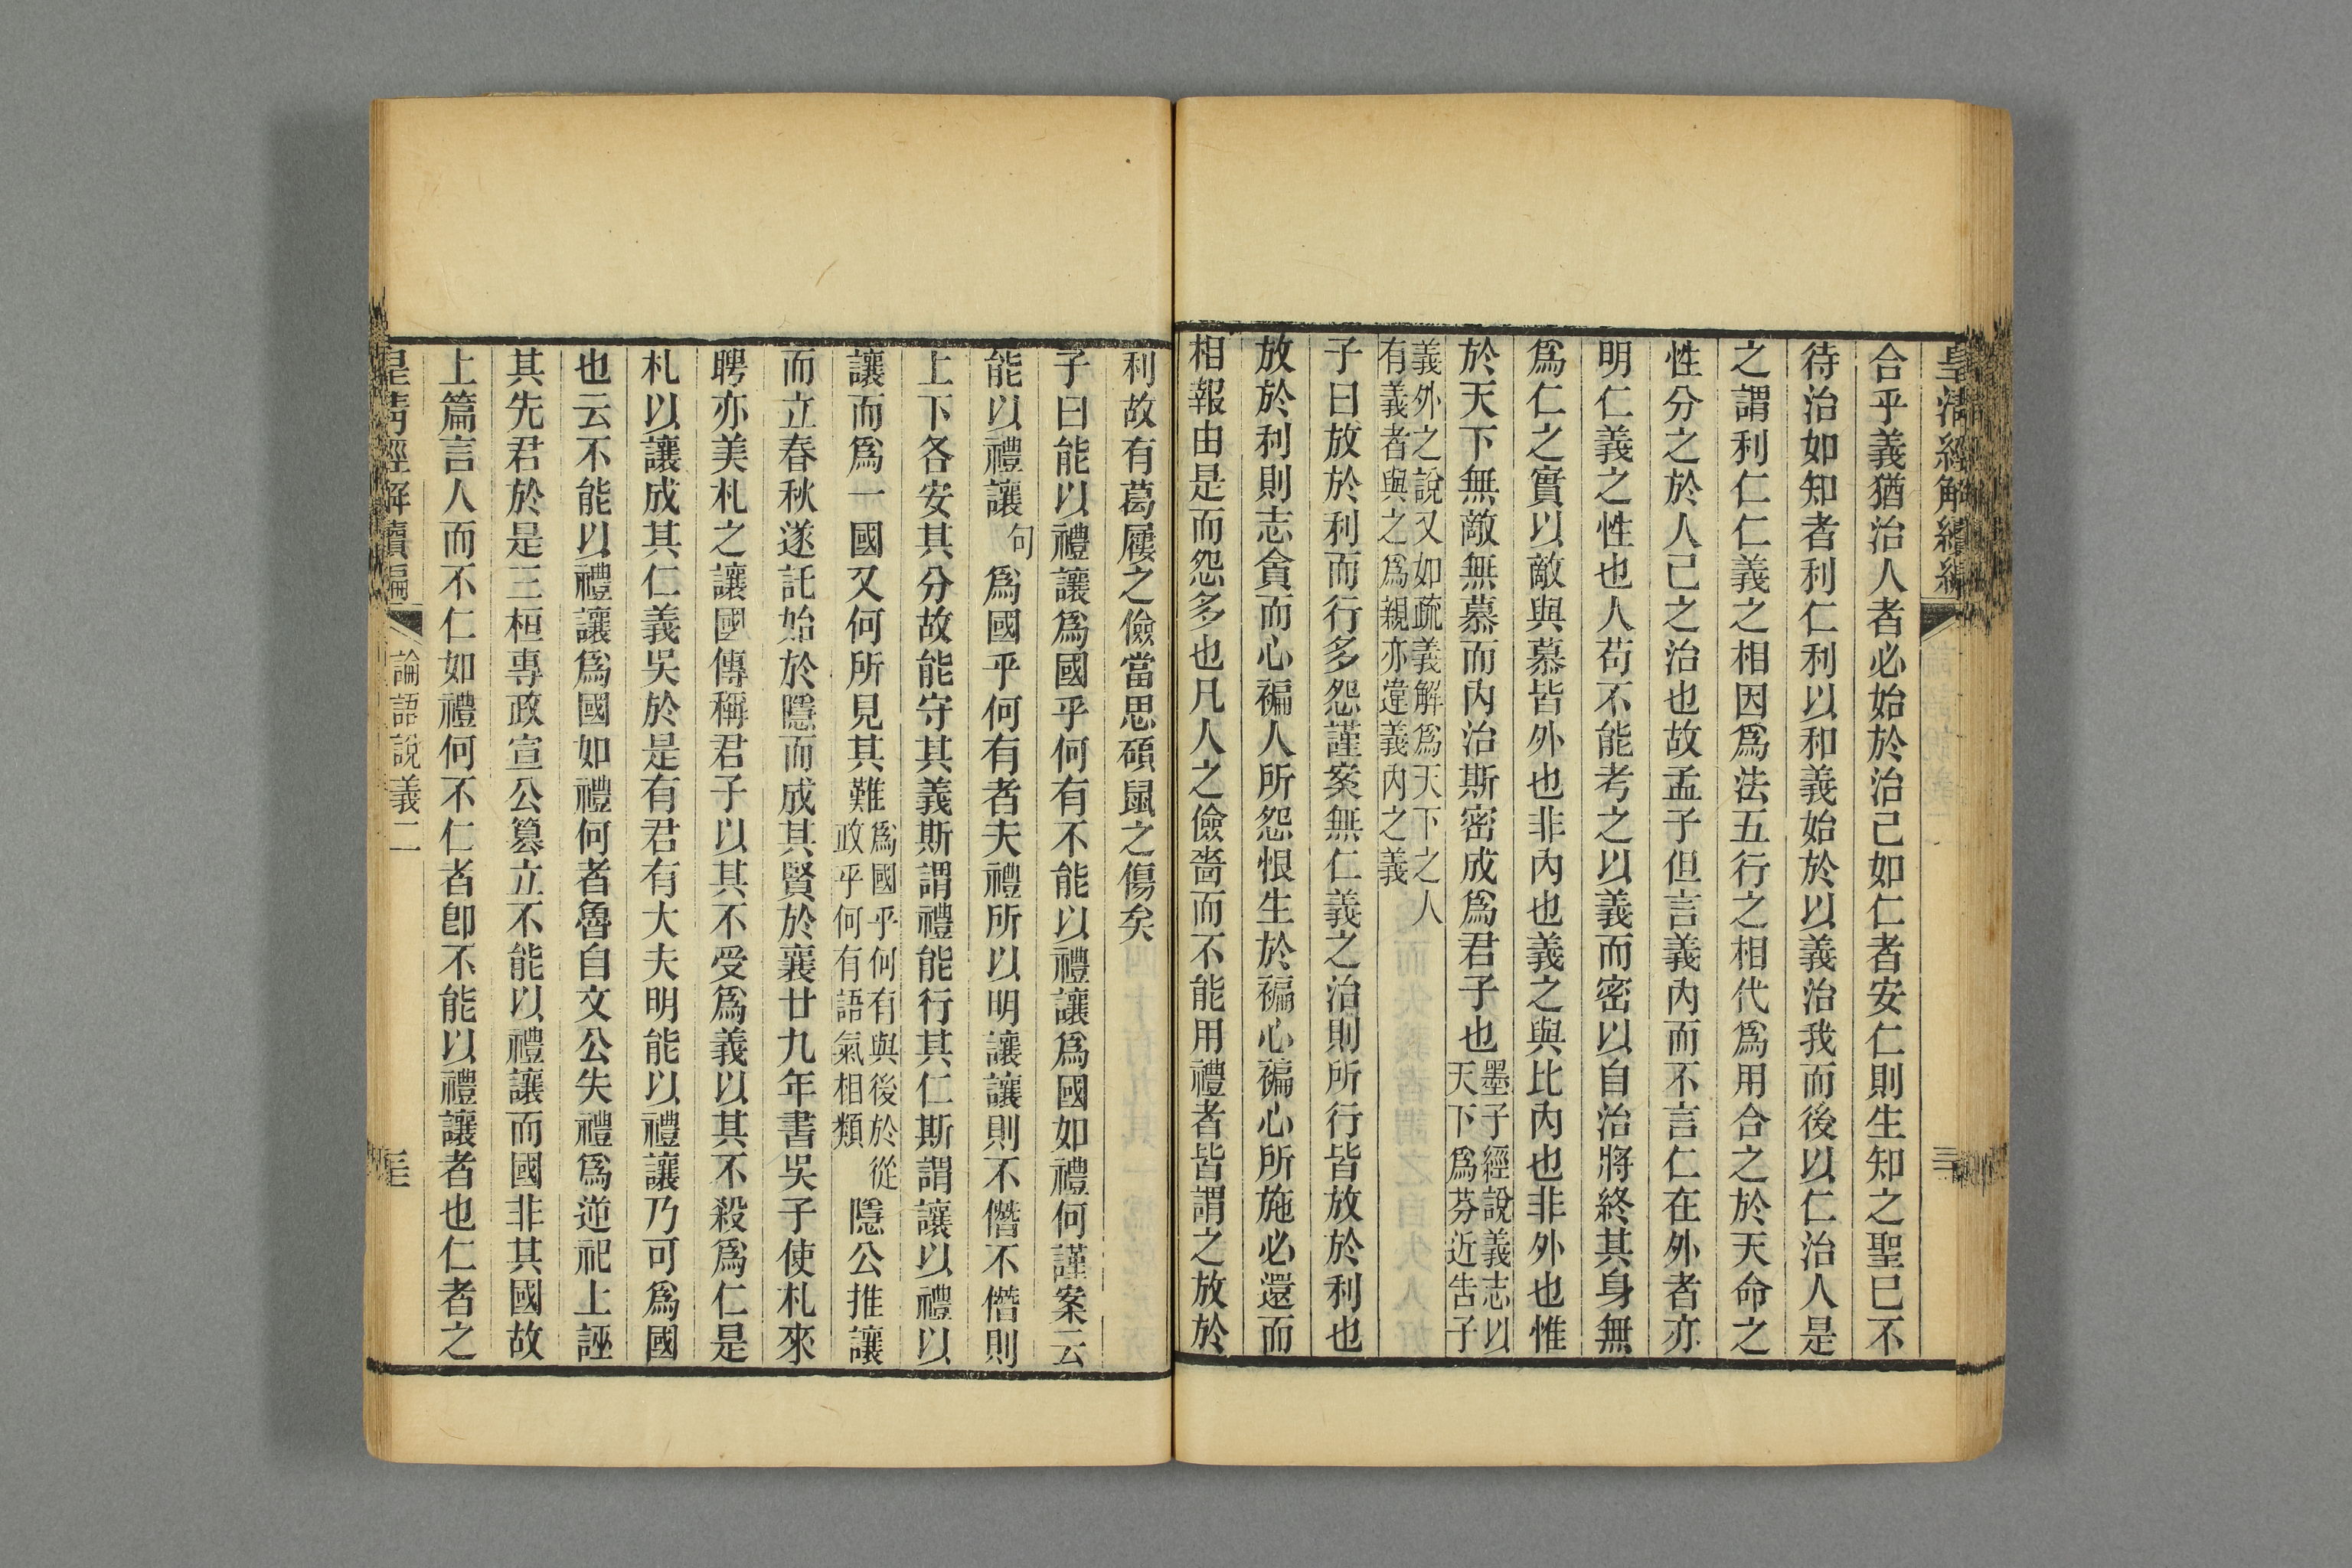 皇清經解續編
合乎義猶治人者必始於治己如仁者安仁則生知之聖巳不
待治如知者利仁利以和義始於以義治我而後以仁治人是
之謂利仁仁義之相因爲法五行之相代爲用合之於天命之
性分之於人己之治也故孟子但言義內而不言仁在外者亦
明仁義之性也人苟不能考之以義而密以自治將終其身無
爲仁之實以敵與慕皆外也非內也義之與比內也非外也惟
於天下無敵無慕而內治斯密成爲君子也
墨子經說義志以
天下爲芬近告子
義外之說又如疏義解爲天下之人
有義者與之爲親亦違義內之義
子曰放於利而行多怨謹案無仁義之治則所行皆放於利也
放於利則志貪而心褊人所怨恨生於褊心褊心所施必還而
相報由是而怨多也凡人之儉嗇而不能用禮者皆謂之放於
利故有葛屨之儉當思碩鼠之傷矣
子曰能以禮讓爲國乎何有不能以禮讓爲國如禮何謹案云
能以禮讓句爲國乎何有者夫禮所以明讓讓則不僭不僭則
上下各安其分故能守其義斯謂禮能行其仁斯謂讓以禮以
讓而爲一國又何所見其難
爲國乎何有與後於從
政乎何有語氣相類
隱公推讓
而立春秋遂託始於隱而成其賢於襄廿九年書吳子使札來
聘亦美札之讓國傳稱君子以其不受爲義以其不殺爲仁是
札以讓成其仁義吳於是有君有大夫明能以禮讓乃可爲國
也云不能以禮讓爲國如禮何者魯自文公失禮爲逆祀上誣
其先君於是三桓專政宣公篡立不能以禮讓而國非其國故
上篇言人而不仁如禮何不仁者卽不能以禮讓者也仁者之
皇清經解續編
論語說義二